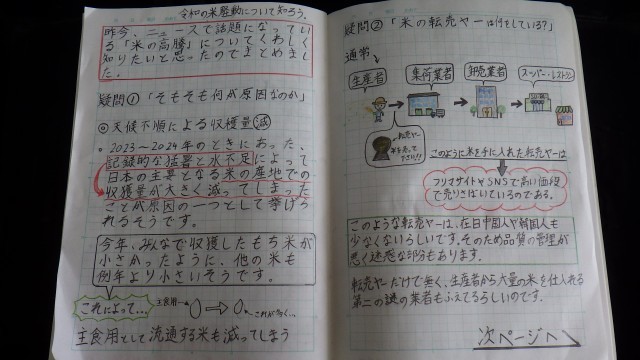 令和の米騒動について知ろう。
昨今、ニュースで話題になってい
る「米の高騰」についてくわしく
知りたいと思ったのでまとめまし
た。
疑問① 「そもそも何が原因なのか」
◎天候不順による収穫量減
・2023〜2024年のときにあった、
記録的な猛暑と水不足によって
日本の主要となる米の産地での
収穫量が大きく減ってしまった
ことが原因の一つとして挙げら
れるそうです。
今年、みんなで収穫したもち米が
小さかったように、他の米も
例年より小さいそうです。
これによって…
主食用
これが多く…
主食用として流通する米も減ってしまう
疑問② 「米の転売ヤーは何をしている?」
通常
生産者
集荷業者
卸売業者
スーパー・レストラン
転売ヤー
米を売って
ください!!
このように米を手に入れた転売ヤーは
フリマサイトやSNSで高い価格
で売りさばいているのである。
このような転売ヤーは、在日中国人や韓国人も
少なくないらしいです。そのため品質の管理が
悪く迷惑な部分もあります。
転売ヤーだけで無く、生産者から大量の米を仕入れる
第二の謎の業者もふえてるらしいのです。
次ページへ